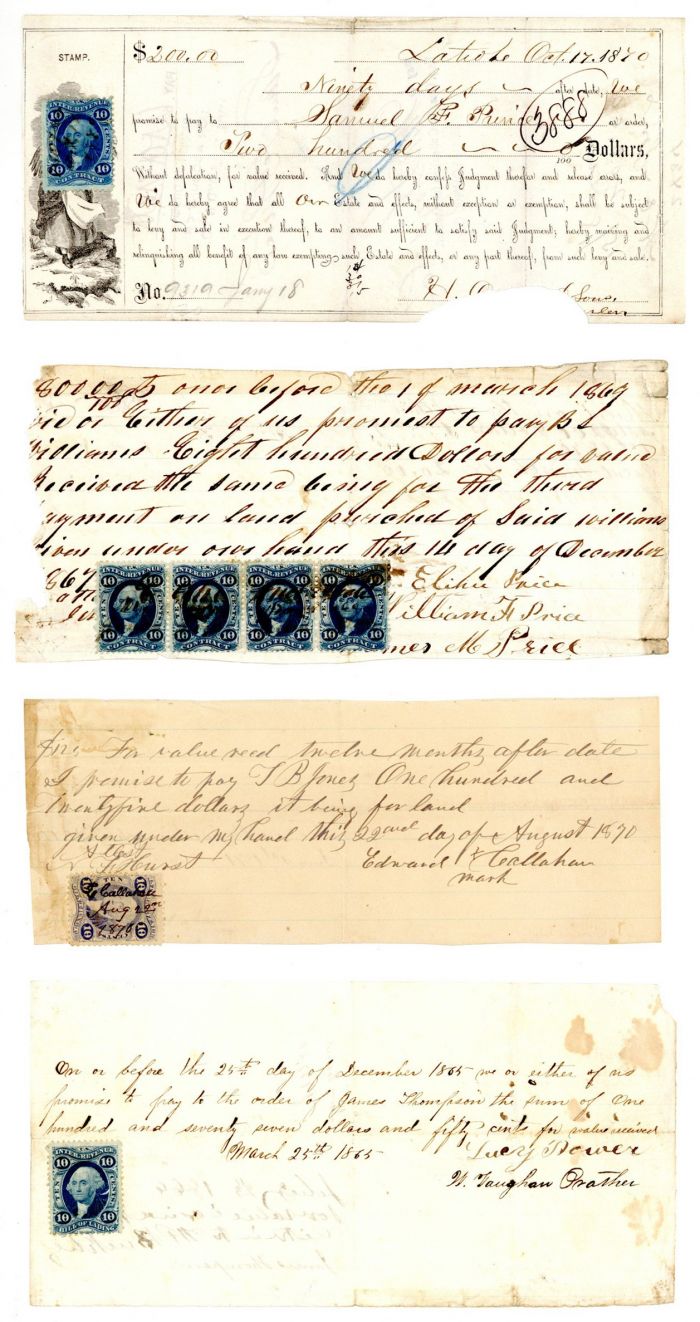 STAMP.
$200.00 Latrobe Oct. 17. 1870
Ninety days after date, We
promise to pay to Samuel F. Prince or order,
3888
Two hundred 100 Dollars,
Without defalcation, for value received. And We do hereby confess Judgment therefor and release errors, and
We do hereby agree that all Our Estate and effects, without exception or exemption, shall be subject
to levy and sale in execution thereof, to an amount sufficient to satisfy said Judgment; hereby waiving and
relinquishing all benefit of any law exempting such Estate and effects, or any part thereof, from such levy and sale.
No. 9319 Jany 18
H. Sons,
10 INTER. REVENUE 10
TEN CENTS
10 CONTRACT 10
800 00/100 On or before the 1 of march 1869
We or Either of us promest to pay B
Williams Eight hundred Dollars for value
Received the same being for the third
ayment on land purched of Said williams
given under our hand this 14 day of December
1867
Elihu Price
William F Price
mer M Price
10 INTER. REVENUE 10
TEN CENTS
10 CONTRACT 10
10 INTER. REVENUE 10
TEN CENTS
10 CONTRACT 10
10 INTER. REVENUE 10
TEN CENTS
10 CONTRACT 10
10 INTER. REVENUE 10
TEN CENTS
10 CONTRACT 10
$125 For value recd twelve months after date
I promise to pay T B Jones One hundred and
twentyfive dollars it being for land
given under my hand this 22nd day of August 1870
Attest
Hurst Edward X Callahan
mark
TEN
10 10
E Callahan
Aug 22nd
1870
10 10
On or before the 25th day of December 1865 we or either of us
promise to pay to the order of James Thompson the sum of One
hundred and seventy seven dollars and fifty cents for value received
March 25th 1865 Lucy Power
W. Vaughan Prather
10 INTER. REVENUE 10
TEN CENTS
10 BILL OF LADING 10